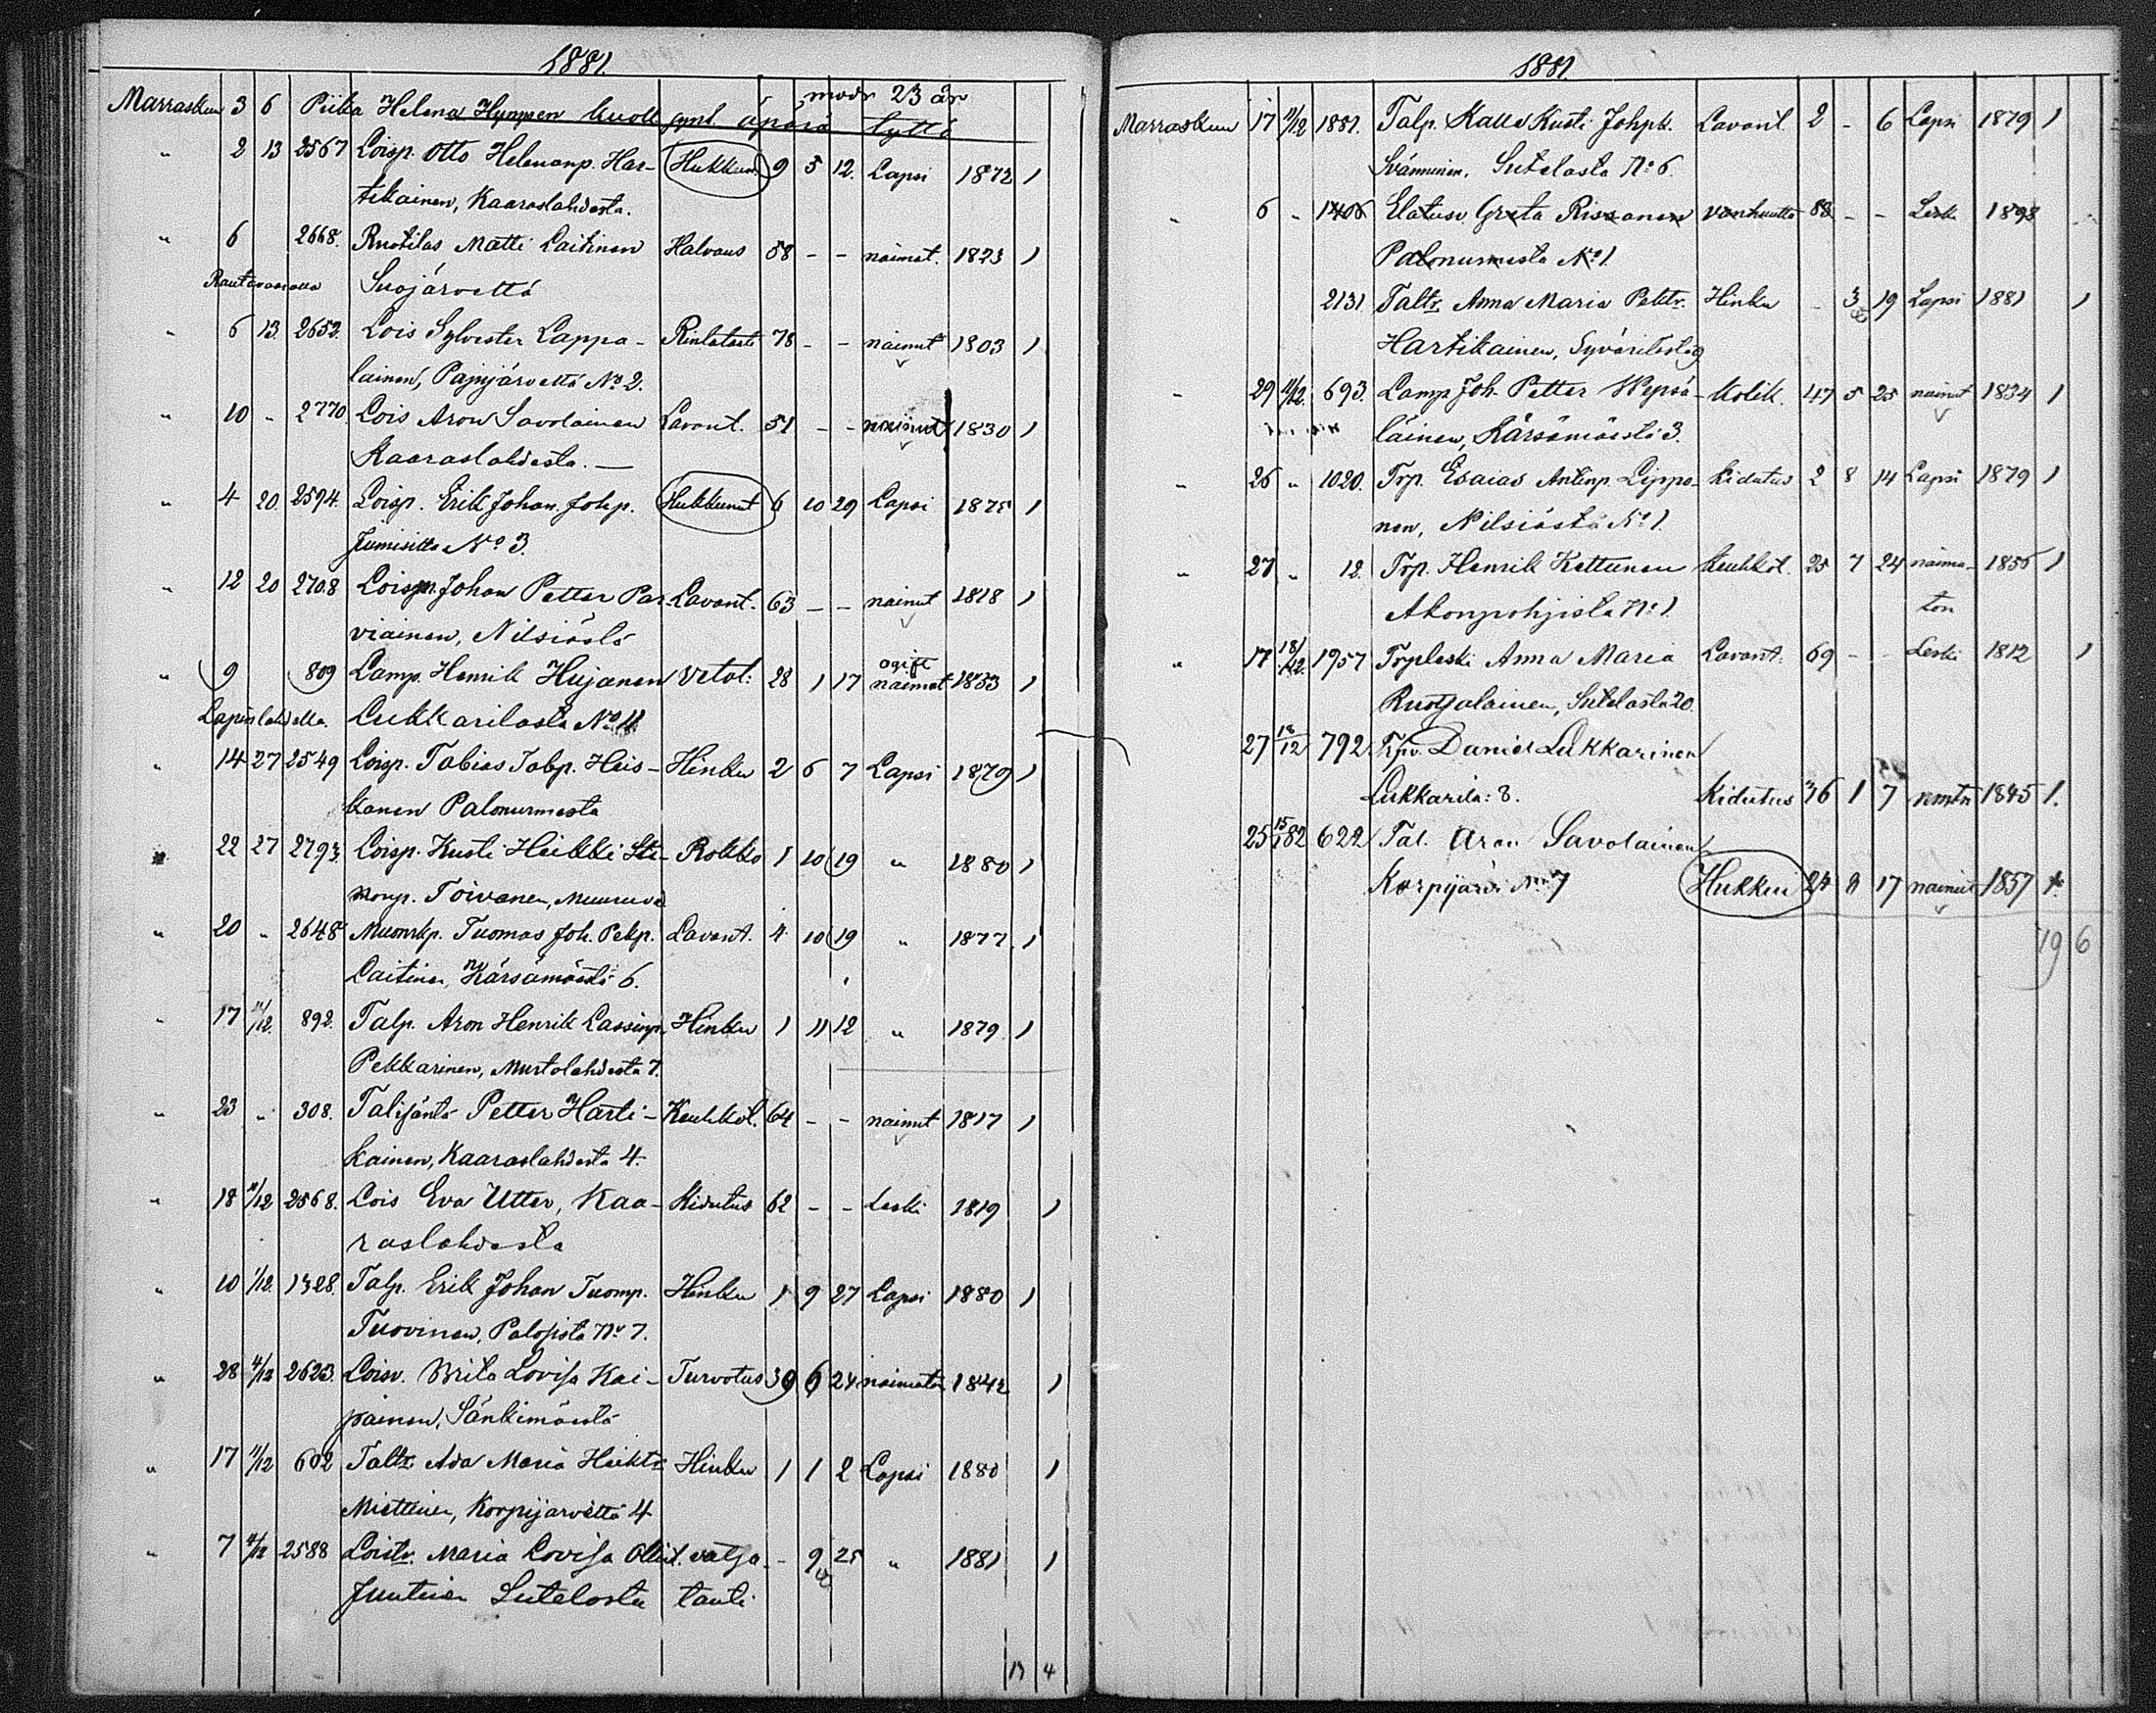 1881.
modr 23 år
Marraskuu 3 6 Piika Helena Hynynen kuoll. synt. äpärä tyttö
" 2 13 2567 Loisp. Otto Helenanp. Har- Hukkun. 9 5 12. Lapsi 1872 1
tikainen, Kaaraslahdesta.
" 6 2668. Ruotilas Matti Laitinen Halvaus 58 - - nainut. 1823 1
Rautavaaralla Suojärveltä
" 6 13. 2652. Lois Sylvester Lappa- Rintatauti 78 - - nainut 1803 1
lainen, Pajujärveltä No 2.
" 10 - 2770. Lois Aron Savolainen Lavant. 51 - - nainut 1830 1
Kaaraslahdesta. —
" 4 20. 2594. Loisp. Erik Johan Johp. Hukkunut 6 10 29 Lapsi 1875 1
No 3.
" 12 20 2708 Loism. Johan Petter Par- Lavant. 63 - - nainut 1818 1
viainen, Nilsiästä
" 9 809 Lamp. Henrik Hujanen Vetot: 28 1 17 ogift naimat 1853 1
Lapinlahdella. Lukkarilasta No 11
" 14 27 2549 Loisp. Tobias Tobp. Heis- Hinku 2 6 7 Lapsi 1879 1
kanen Palonurmesta
" 22 27 2793 Loisp. Kusti Heikki Ste- Rokko 1 10 19 " 1880 1
Toivanen, Muuruve
" 20 " 2648 Muonrkp. Tuomas Joh. Pekp. Lavant. 4 10 19 " 1877 1
Laitinen, Kärsämäestä 6.
" 17 11/12. 892. Talp. Aron Henrik Lassinp. Hinku 1 11 12 " 1879 1
Pekkarinen, Murtolahdesta 7.
" 23 " 308. Talisäntä Petter Harti- Keuhkot. 64 - - nainut 1817 1
kainen, Kaaraslahdesta 4.
" 18 11/12 2568. Lois Eva Utter, Kaa- Kidutus 62 - - Leski 1819 1
raslahdesta
" 10 1/12. 1328. Talp. Erik Johan Tuomp. Hinku 1 9 27 Lapsi 1880 1
Tuovinen, Palosista No 7.
" 28 4/12 2623. Loisv. Brita Lovisa Kai- Turvotus 39 6 24 naimatoin 1842 1
painen, Sänkimäestä
" 17 11/12 602 Taltr. Ada Maria Heiktr Hinku 1 1 2 Lapsi 1880 1
Miettinen, Korpijärveltä 4
" 7 11/12 2588 Loistr. Maria Lovisa Ollint. vatsa- - 9 25 " 1881 1
Juutinen Sutelasta tauti
13 4
1881.
Marraskuu 17 11/12 1881. Talp. Kalle Kusti Johpk. Lavant. 2 - 6 Lapsi 1879 1
Svänninen, Sutelasta No 6.
" 6 " 1406 Elatusv. Greta Rissanen vanhuutta 88 - - Leski 1898
Palonurmesta No 1.
2131 Taltr. Anna Maria Pekktr. Hinku - 3 19 Lapsi 1881 1
Hartikainen, Syväriltä 9
" 29 11/12. 693. Lamp. Joh. Petter Wepsä- Kolik. 47 5 25 nainut 1834 1
läinen, Kärsämäestä 3.
" 26 " 1020. Trp. Esaias Antinp. Lippo- Kidutus 2 8 14 Lapsi 1879 1
nen, Nilsiästä No 1.
" 27 " 12. Trp. Henrik Kettunen Keuhkot. 25 7 24 naima- 1856 1
Akonpohjista No 1. ton
" 17 18/12 1957 Trpleski Anna Maria Lavant. 69 - - Leski 1812 1
Ruotsalainen, Sutelasta 20.
27 18/12 792 Trpv. Daniel Lukkarinen
Lukkarila: 8. Kidutus 36 1 7 nmtn 1845 1.
25 15/1 82 622 Tal. Aron Savolainen
Korpijärvi No 7 Hukkui 24 8 17 nainut 1857 1.
19 6